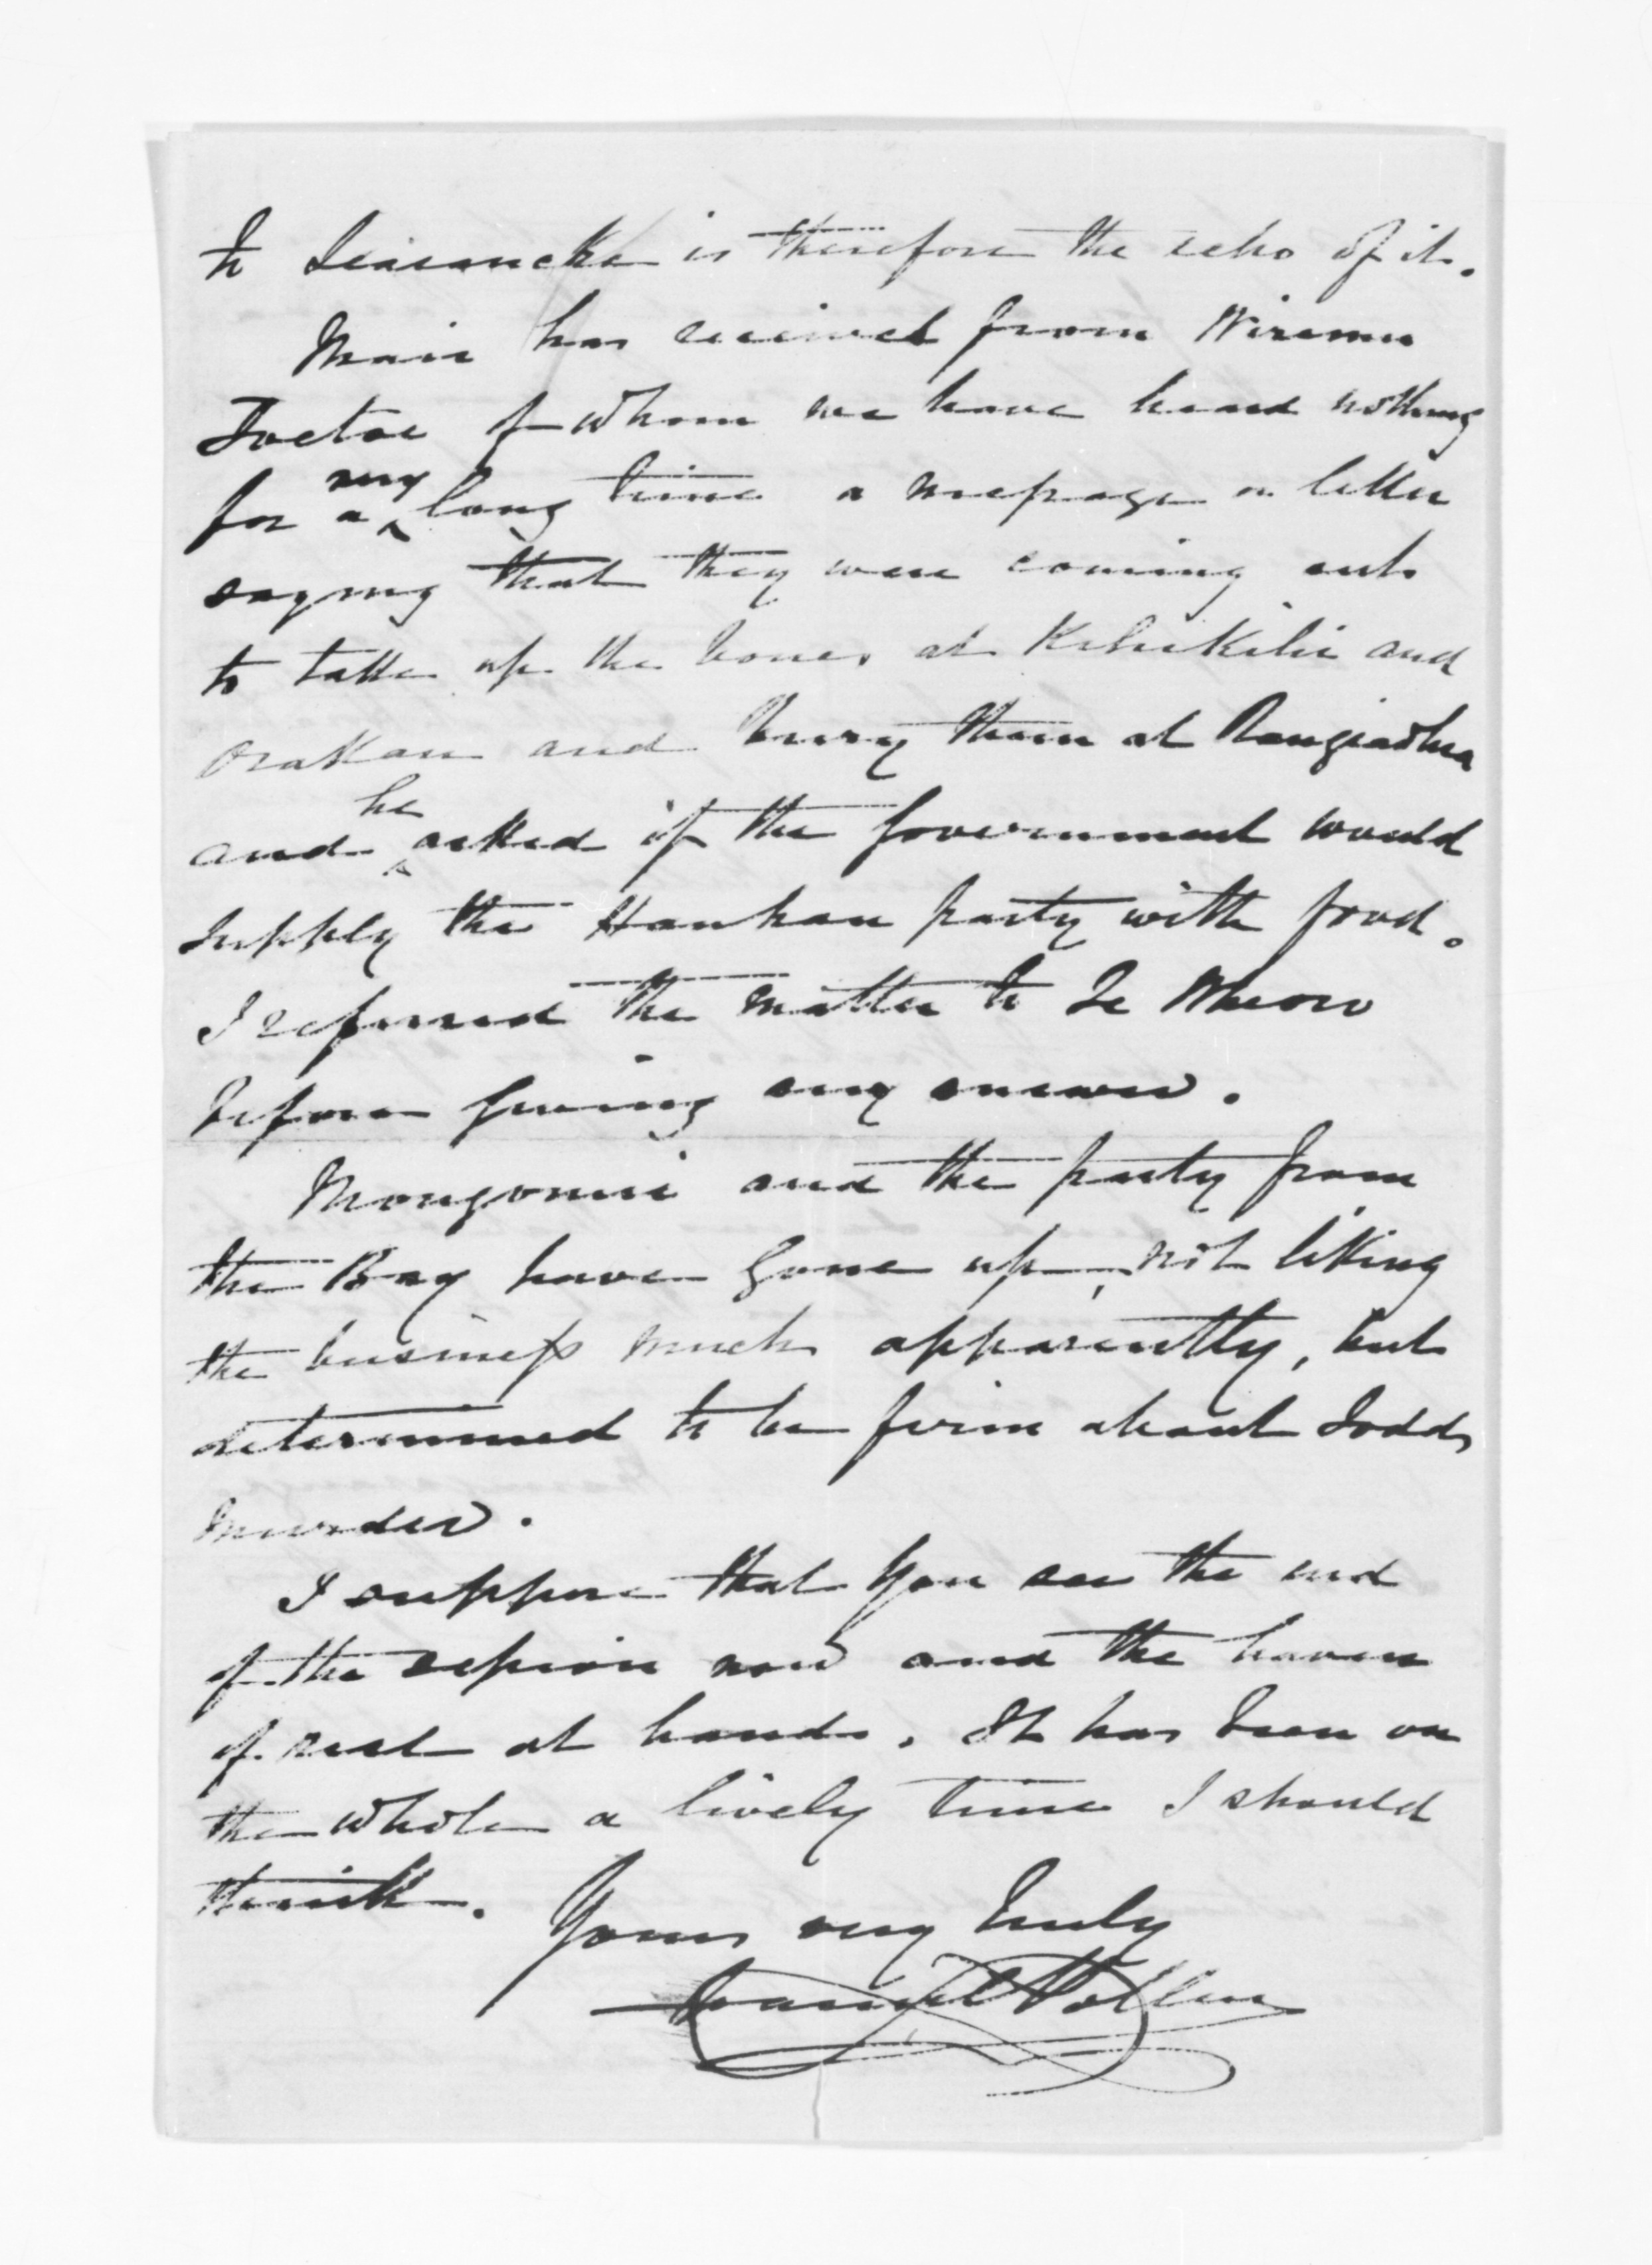 to is therefore the echo of it.
Mair has received from Wiremu
Toetoe of whom we have heard nothing
for a very long time a message or letter
saying that they were coming out
to take up the bones at Kihikihi and
Orakau and bury them at Rangiaohia
and he asked if the Government would
supply the Hauhau party with food.
I referred the matter to Te Wheoro
before giving any answer.
Mangonui and the party from
the Bay have gone up, not liking
the business much apparently, but
determined to be firm about Todds
murder.
I suppose that you see the end
of the session now and the haven
of rest at hand. It has been on
the whole a lively time I should
think.
Yours very truly
Daniel Pollen